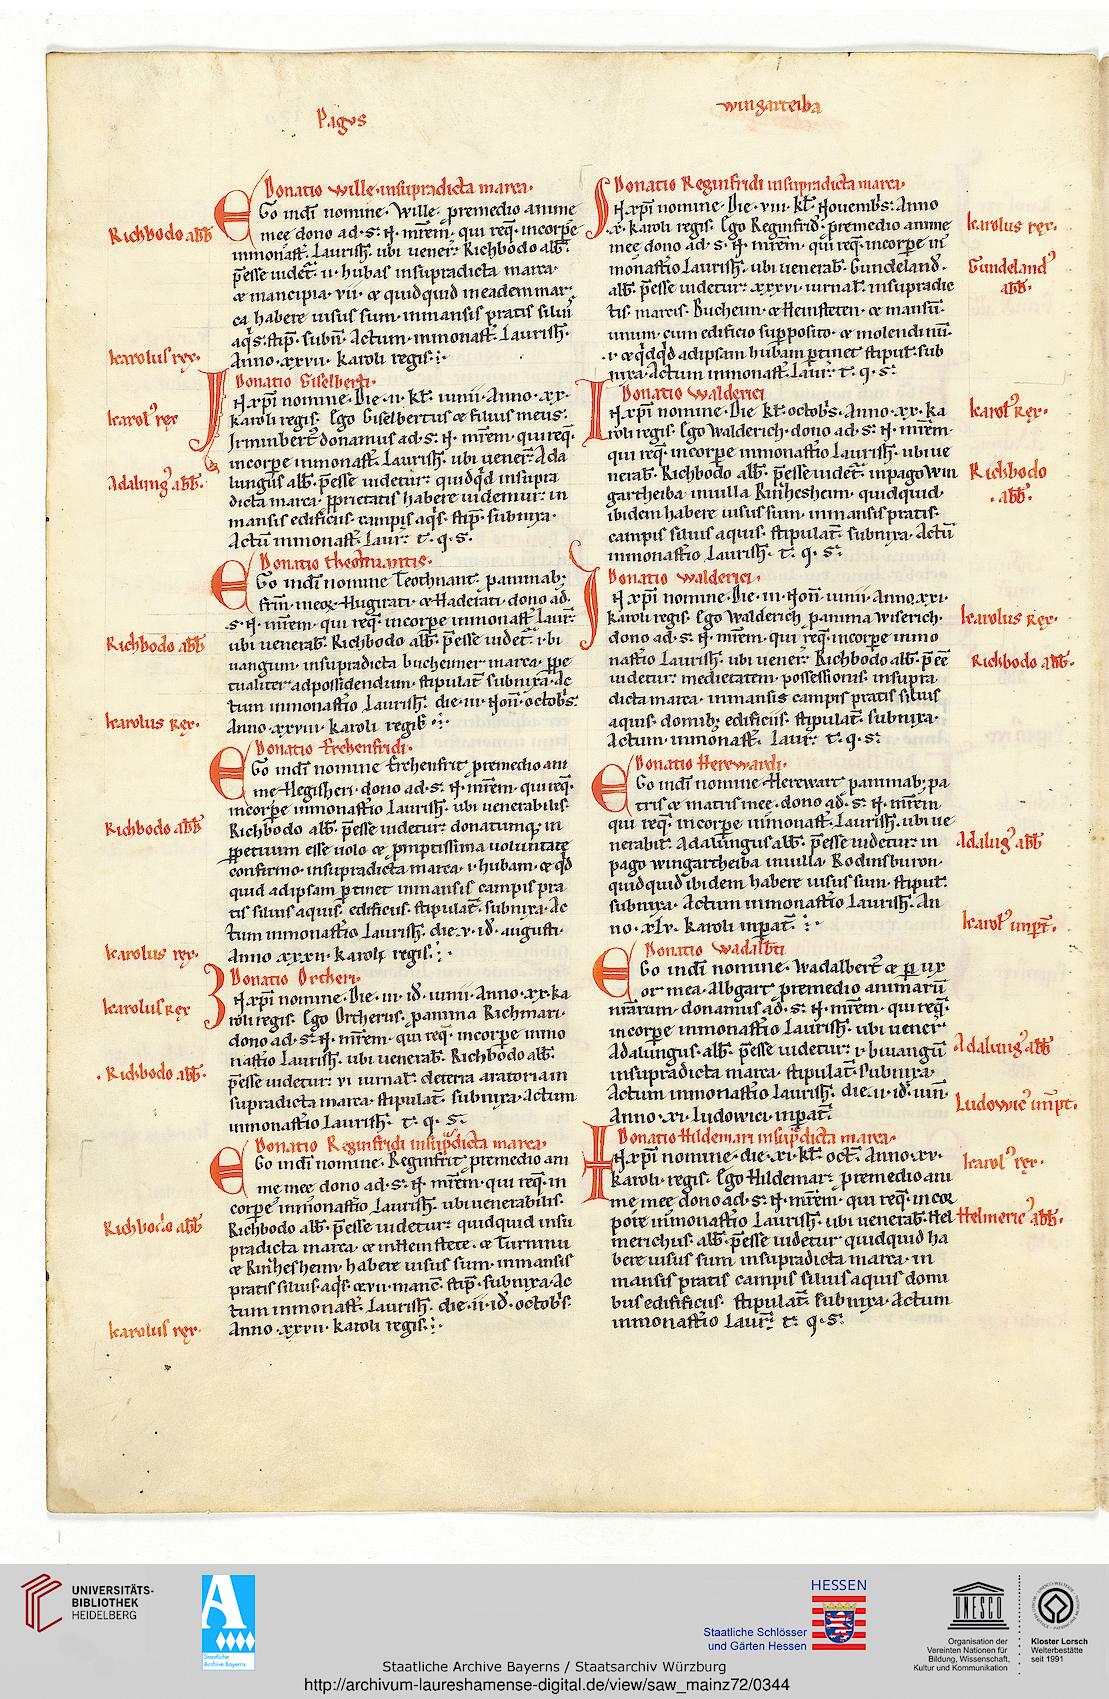 Pagus
wingarteiba
Donatio wille· in supradicta marca·
Ego indi nomine· Wille· p remedio anime
Richbodo abb
mee dono ad· s· N· mrem· qui req· in corpe
in monast· Laurish· ubi vener· Richbodo abb·
p esse videt· ii· hubas in supradicta marca·
& mancipia· vii· & quidquid in eadem mar
ca habere visus sum· in mansis pratis silvi
aqs· stip· subn· Actum in monast· Laurish·
karolus rex·
Anno· xxvii· karoli regis·
Donatio Giselberti·
In xpi nomine· Die· ii· kl· iunii· Anno· xx·
karol' rex
karoli regis· Ego Giselbertus & filius meus·
Irminbert' donamus ad· s· N· mrem· qui req·
in corpe in monast· Laurish· ubi vener· Ada
Adalung' abb·
lungus abb· p esse videtur· quidqd in supra
dicta marca· pprietatis habere videmur· in
mansis edificiis· campis aqs· stip· subnixa·
Actu in monast· Laur· t· q· s·
Donatio theothnantis·
Ego indi nomine Teothnant· p animab;
frm· meo4· Hugirati· & Haderati· dono ad·
s· N· mrem· qui req· in corpe in monast· Laur·
Richbodo abb
ubi venerab· Richbodo abb· p esse videt· i· bi
vangum· in supradicta bucheimer marca· ppe
tualiter ad possidendum· stipulat· subnixa· Ac
tum in monastio Laurish· die· iii· Non· octobs·
karolus rex·
Anno· xxviii· karoli regis·
Donatio Erchenfridi·
Ego indi nomine Erchenfrit p remedio ani
me Hegisheri· dono ad· s· N· mrem· qui req·
in corpe in monastio Laurish· ubi venerabilis·
Richbodo abb
Richbodo abb· p esse videtur· donatumq; in
ppetuum esse volo & pmptissima voluntate
confirmo· in supradicta marca· i· hubam· & qd
quid ad ipsam ptinet in mansis campis pra
tis silvis aquis· edificiis· stipulat· subnixa· Ac
tum in monastio Laurish· die· v· id· augusti·
karolus rex·
Anno· xxxii· karoli regis·
Donatio Ortheri·
karolus rex
In xpi nomine· Die· iii· id· iunii· Anno· xx· ka
roli regis· Ego Ortherus· p anima Richmari·
dono ad· s· N· mrem· qui req· in corpe in mo
nastio Laurish· ubi venerab· Richbodo abb·
Richbodo abb·
p esse videtur· vi iurnal· de terra aratoria in
supradicta marca· stipulat· subnixa· Actum
in monastio Laurish· t· q· s·
Donatio Reginfridi in supdicta marca·
Ego indi nomine· Reginfrit p remedio ani
me mee dono ad· s· N· mrem· qui req· in
corpe in monastio Laurish· ubi venerabilis·
Richbodo abb
Richbodo abb· p esse videtur· quidquid in su
pradicta marca· & in Heinstete· & Turninu
& Rinhesheim· habere visus sum· in mansis
pratis silvis· aqs· & vii· manc· stip· subnixa· Ac
tum in monast· Laurish· die· ii· id· octobs·
karolus rex·
Anno· xxvii· karoli regis·
Donatio Reginfridi in supradicta marca·
In xpi nomine· Die· viii· kl· Novembs· Anno
karolus rex·
x· karoli regis· Ego Reginfrid· p remedio anime
mee dono ad· s· N· mrem· qui req· in corpe in
Gundeland'
monastio Laurish· ubi venerab· Gundeland·
abb·
abb· p esse videtur· xxxvi· iurnal· in supradic
tis· marcis· Bucheim· & Heinsteten· & mansu·
unum· cum edificio supposito· & molendinu·
i· & qdqd ad ipsam hubam ptinet stipul· sub
nixa· Actum in monast· Laur· t· q· s·
Donatio walderici
karol' rex·
In xpi nomine· Die kl· octobs· Anno· xx· ka
roli regis· Ego Walderich· dono ad· s· N· mrem·
qui req· in corpe in monastio Laurish· ubi ve
Richbodo
nerab· Richbodo abb· p esse videt· in pago Win
abb'·
gartheiba· in villa Rinhesheim· quidquid·
ibidem habere visus sum· in mansis pratis·
campis silvis aquis· stipulat· subnixa· Actu
in monastio Laurish· t· q· s·
Donatio walderici·
In xpi nomine· Die· iii· Non· iunii· Anno· xxi·
karolus rex·
karoli regis· Ego Walderich p anima Wiserich·
dono ad· s· N· mrem· qui req· in corpe in mo
Richbodo abb·
nastio Laurish· ubi vener· Richbodo abb· p ee
videtur· medietatem· possessionis· in supra
dicta marca· in mansis campis pratis silvis
aquis· domib; edificiis· stipulat· subnixa·
Actum· in monast· Laur· t· q· s·
Donatio Herewardi·
Ego indi nomine· Herewart p animab; pa
tris & matris mee· dono ad· s· N· mrem
qui req· in corpe in monastio Laurish· ubi ve
Adalung' abb
nerabit· Adalungus abb· p esse videtur· in
pago wingartheiba in villa· Rodinsburon·
quidquid ibidem habere visus sum· stipul·
subnixa· Actum in monastio Laurish· An
karol' inpt·
no· xlv· karoli inpat·
Donatio wadalbti
Ego indi nomine· Wadalbert' & p ux
or mea· Albgart p remedio animaru
nrarum· donamus ad· s· N· mrem· qui req·
in corpe in monastio Laurish· ubi vener·
Adalung' abb
Adalungus· abb· p esse videtur· i· bivangu
in supradicta marca· stipulat· subnixa·
Actum in monastio Laurish· die· ii· id· iun·
Ludowic' inpt·
Anno· xi· Ludowici· inpat·
Donatio Hildemari in supdicta marca·
karol' rex·
In xpi nomine· die· xi· kl· oct· Anno· xv·
karoli· regis· Ego Hildemar· p remedio ani
me mee dono ad· s· N· mrem· qui req· in cor
Helmeric' abb·
pore in monastio Laurish· ubi venerab· Hel
merichus· abb· p esse videtur quidquid ha
bere visus sum in supradicta marca· in
mansis pratis campis silvis aquis domi
bus edifificiis· stipulat· subnixa· Actum
in monastio Laur· t· q· s·
UNIVERSITÄTS-
BIBLIOTHEK
HEIDELBERG
A
Staatliche
Archive Bayerns
HESSEN
Staatliche Schlösser
und Gärten Hessen
UNESCO
Organisation der
Vereinten Nationen für
Bildung, Wissenschaft,
Kultur und Kommunikation
Kloster Lorsch
Welterbestätte
seit 1991
Staatliche Archive Bayerns / Staatsarchiv Würzburg
http://archivum-laureshamense-digital.de/view/saw_mainz72/0344